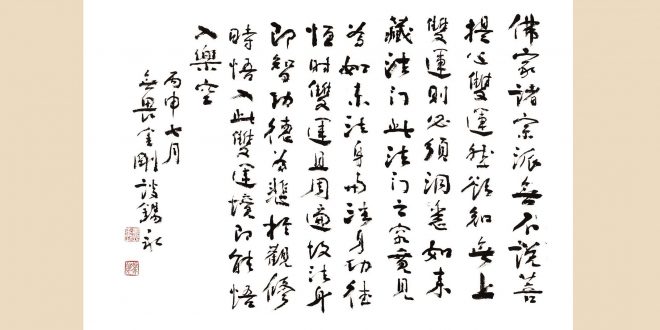 佛家諸宗派無不說菩
提心雙運然欲知無上
雙運則必須洞悉如來
藏法門此法門之究竟見
為如來法身與法身功德
恒時雙運且周遍故法身
即智功德為悲於觀修
時悟入此雙運境即能悟
入樂空
丙申七月
無畏金剛談錫永